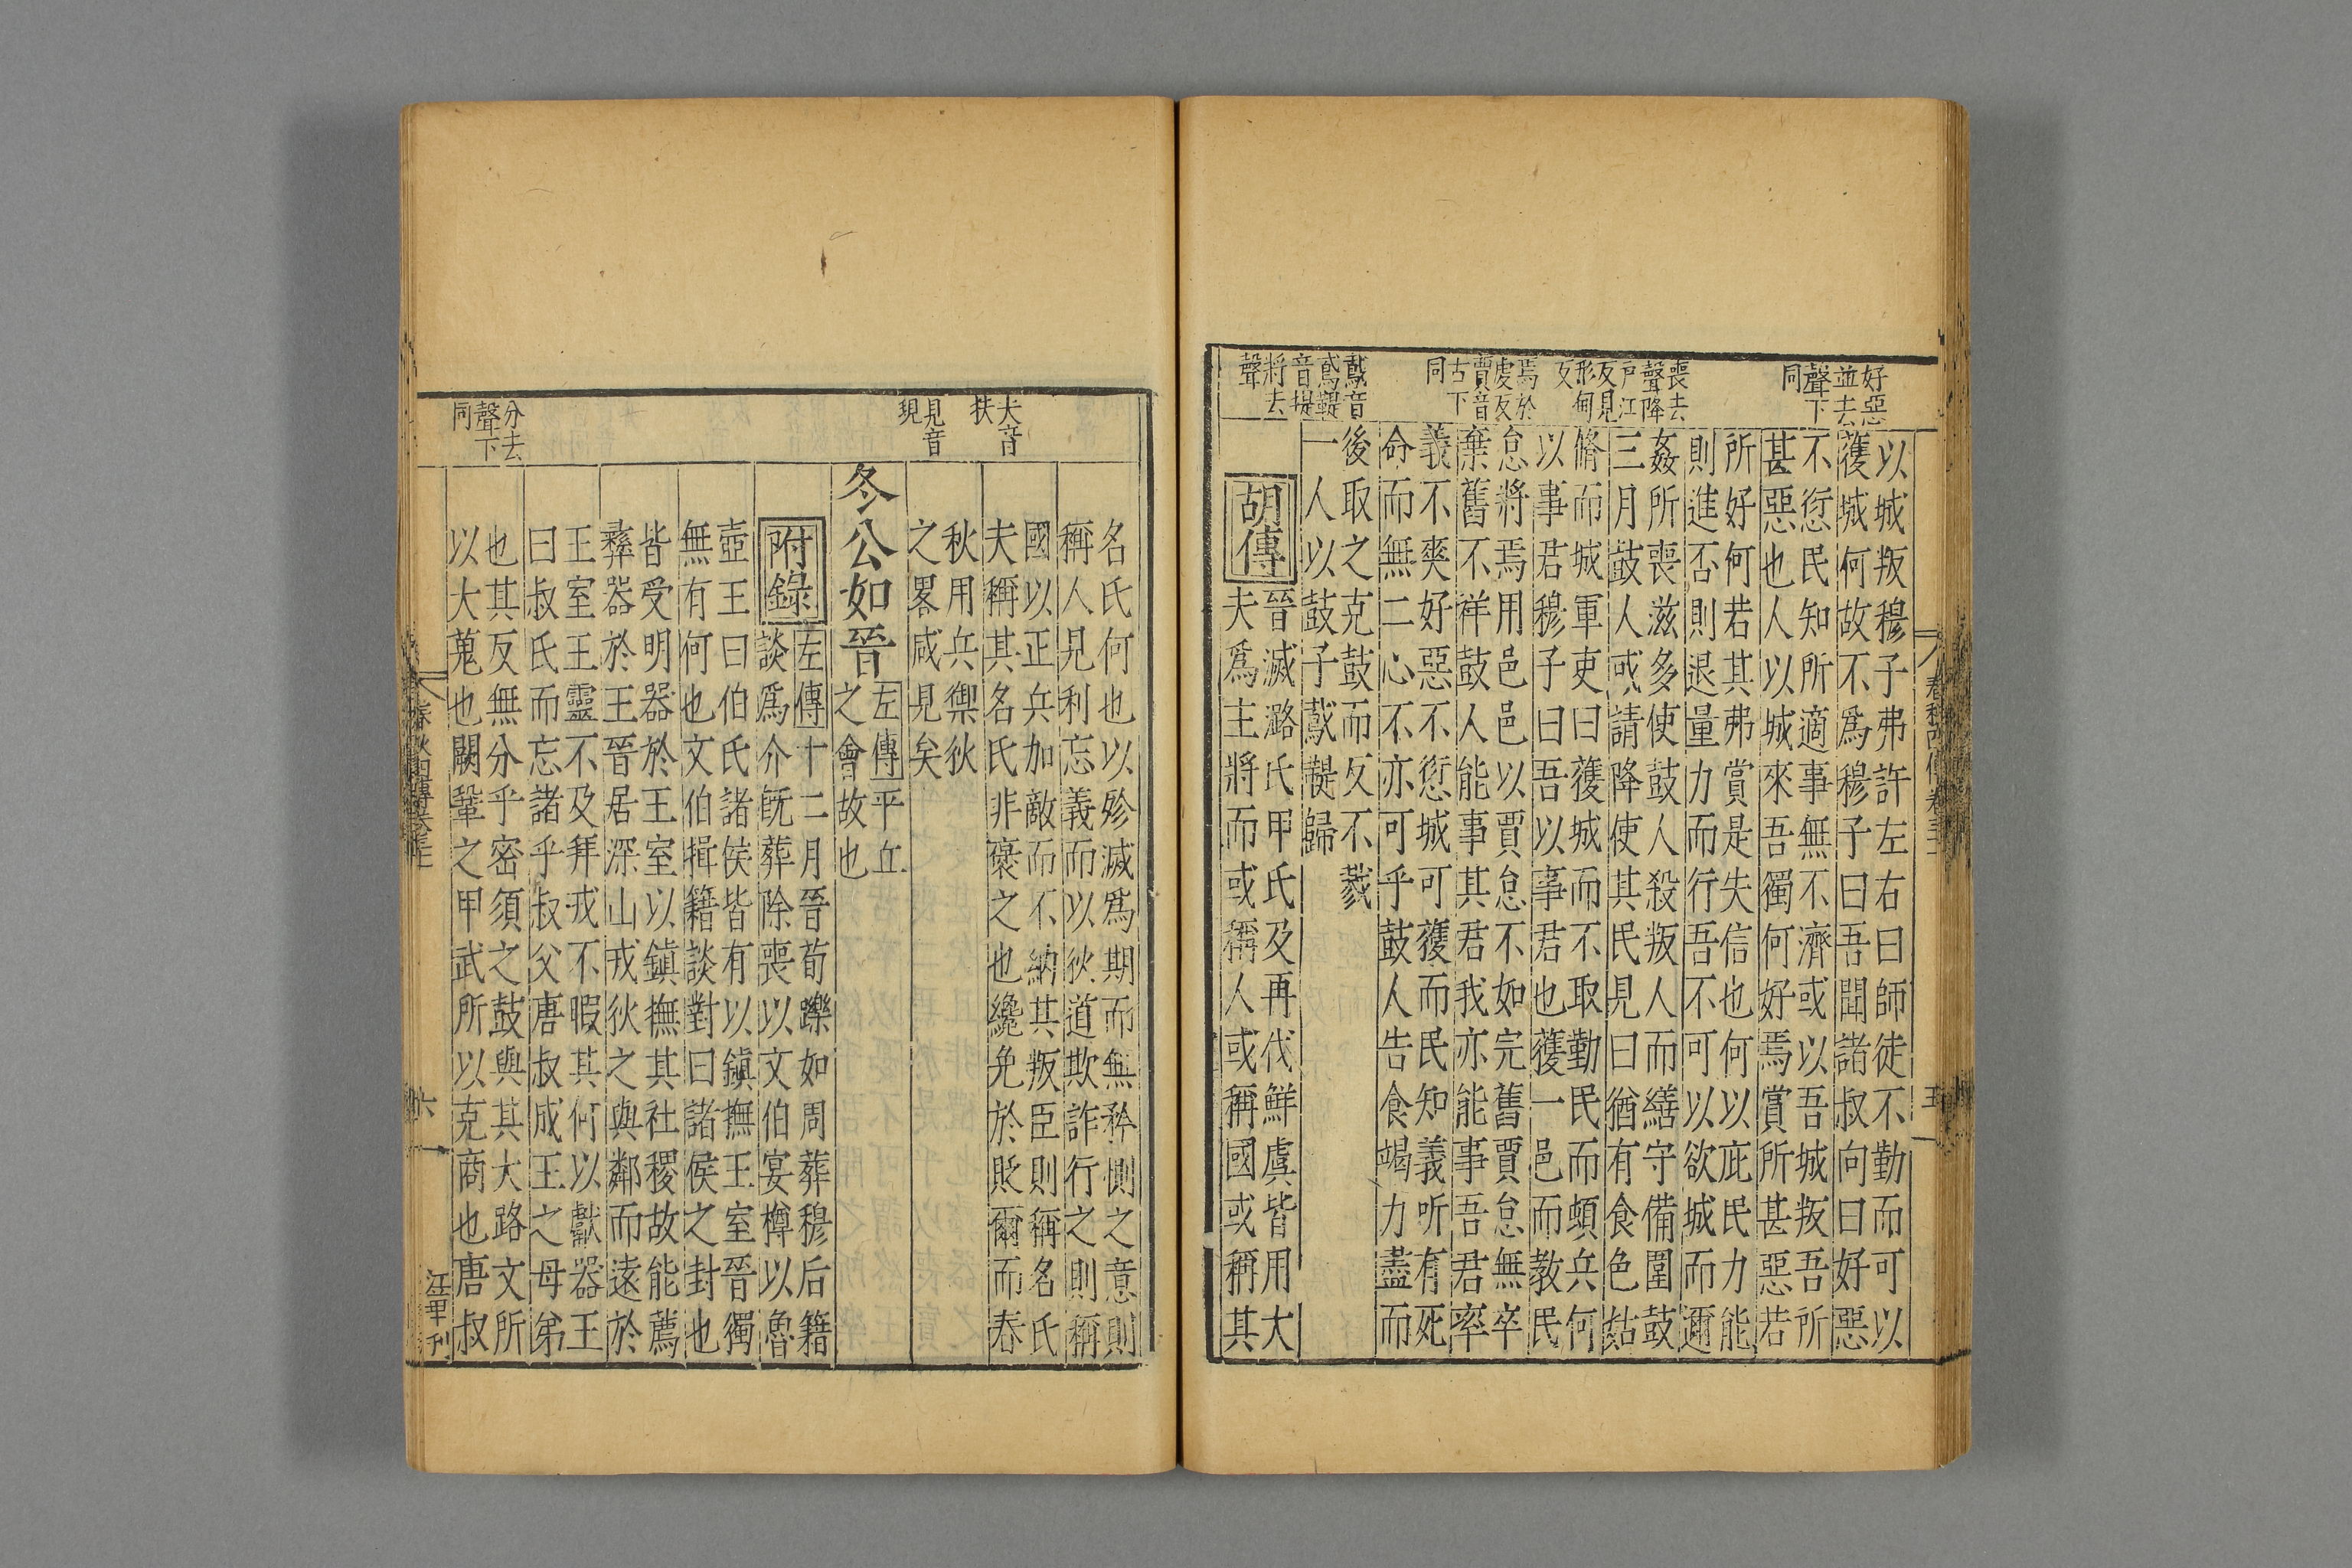 好惡
並去
聲下
同
喪去
聲降
戶江
反見
形甸
反
焉於
虔反
賈音
古下
同
䳒音
鳶鞮
音堤
將去
聲
以城叛穆子弗許左右曰師徒不勤而可以
獲城何故不爲穆子曰吾聞諸叔向曰好惡
不愆民知所適事無不濟或以吾城叛吾所
甚惡也人以城來吾獨何好焉賞所甚惡若
所好何若其弗賞是失信也何以庇民力能
則進否則退量力而行吾不可以欲城而邇
姦所喪滋多使鼓人殺叛人而繕守備圍鼓
三月鼓人或請降使其民見曰猶有食色姑
脩而城軍吏曰獲城而不取勤民而頓兵何
以事君穆子曰吾以事君也獲一邑而教民
怠將焉用邑邑以賈怠不如完舊賈怠無卒
棄舊不祥鼓人能事其君我亦能事吾君率
義不爽好惡不愆城可獲而民知義所有死
命而無二心不亦可乎鼓人告食竭力盡而
後取之克鼓而反不戮
一人以鼓子䳒鞮歸
胡傳
晉滅潞氏甲氏及再伐鮮虞皆用大
夫爲主將而或稱人或稱國或稱其
春秋胡傳卷二十
五
大音
扶
見音
現
分去
聲下
同
名氏何也以殄滅爲期而無矜惻之意則
稱人見利忘義而以狄道欺詐行之則稱
國以正兵加敵而不納其叛臣則稱名氏
夫稱其名氏非褒之也纔免於貶爾而春
秋用兵禦狄
之畧咸見矣
冬公如晉
左傳平丘
之會故也
附錄
左傳十二月晉荀躒如周葬穆后籍
談爲介旣葬除喪以文伯宴樽以魯
壺王曰伯氏諸侯皆有以鎭撫王室晉獨
無有何也文伯揖籍談對曰諸侯之封也
皆受明器於王室以鎭撫其社稷故能薦
彝器於王晉居深山戎狄之與鄰而遠於
王室王靈不及拜戎不暇其何以獻器王
曰叔氏而忘諸乎叔父唐叔成王之母弟
也其反無分乎密須之鼓與其大路文所
以大蒐也闕鞏之甲武所以克商也唐叔
六
江甲刋